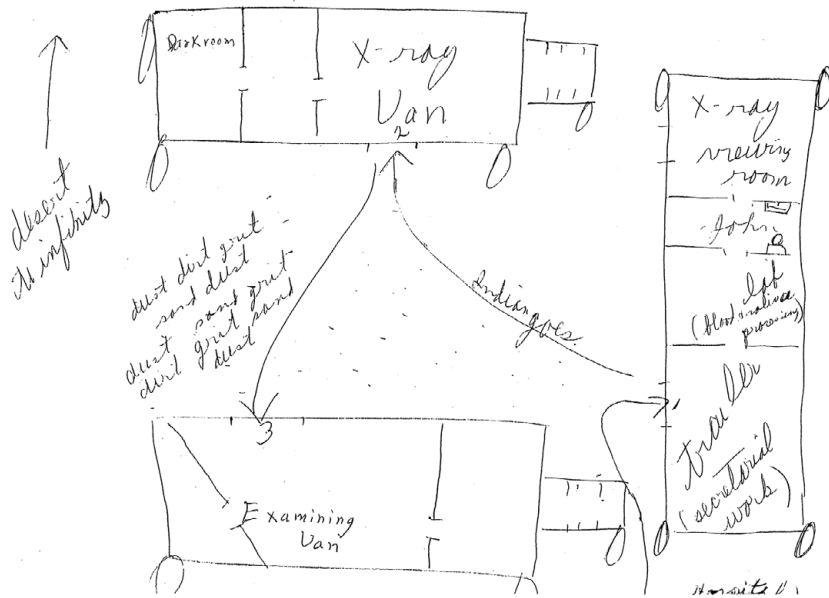 Darkroom
X-ray
Van
2
desert
to infinity
dust dirt grit
sand dust
dust sand grit
dirt grit sand
dust
Indian goes
X-ray
viewing
room
John
lab
(blood & saliva
processing)
trailer
(secretarial
work)
3
Examining
Van